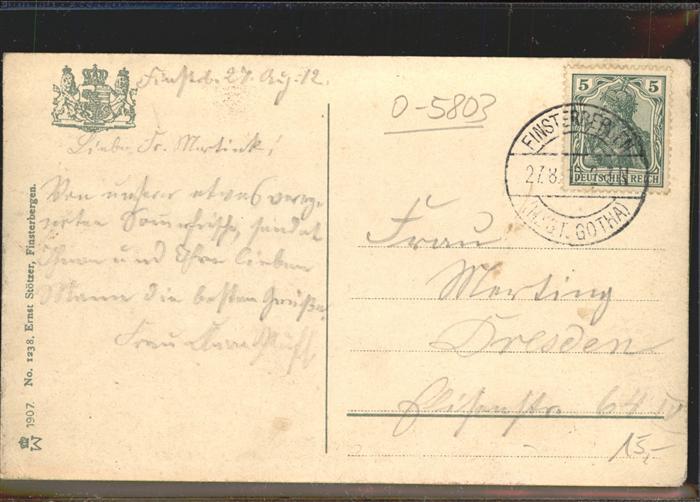 Finstb. 27. Aug. 12.
Liebe Fr. Mertink!
Von unserer etwas
Sommerfrische, sendet
Ihnen und Ihrer lieben
Mama die besten Grüße
Frau
O-5803
5 5
DEUTSCHES REICH
FINSTERBERGEN
27.8.
GOTHA)
Frau
Merting
Dresden
Elisenstr. 64
15,-
1907. No. 1238. Ernst Stötzer, Finsterbergen.